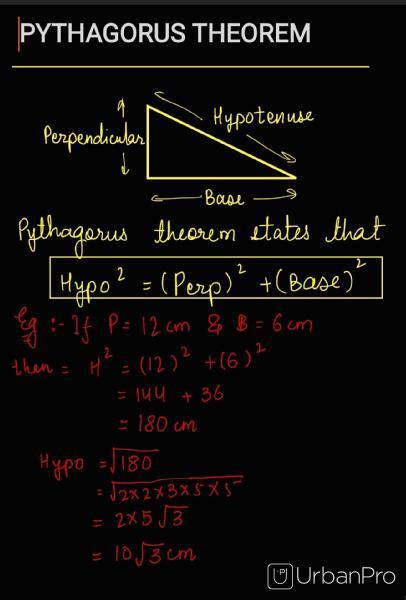 PYTHAGORUS THEOREM
Hypotenuse
Perpendicular
Base
Pythagorus theorem states that
Hypo² = (Perp)² + (Base)²
Eg :- If P = 12 cm & B = 6 cm
then = H² = (12)² + (6)²
= 144 + 36
= 180 cm
Hypo = √180
= √2×2×3×5×5
= 2×5√3
= 10√3 cm
UrbanPro